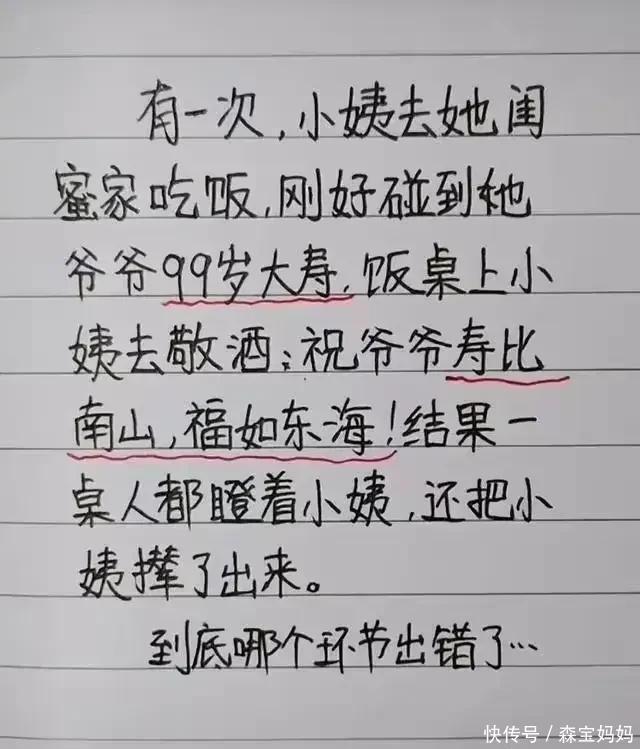 有一次,小姨去她闺
蜜家吃饭,刚好碰到他
爷爷99岁大寿,饭桌上小
姨去敬酒:祝爷爷寿比
南山,福如东海!结果一
桌人都瞪着小姨,还把小
姨撵了出来。
到底哪个环节出错了…
快传号/森宝妈妈